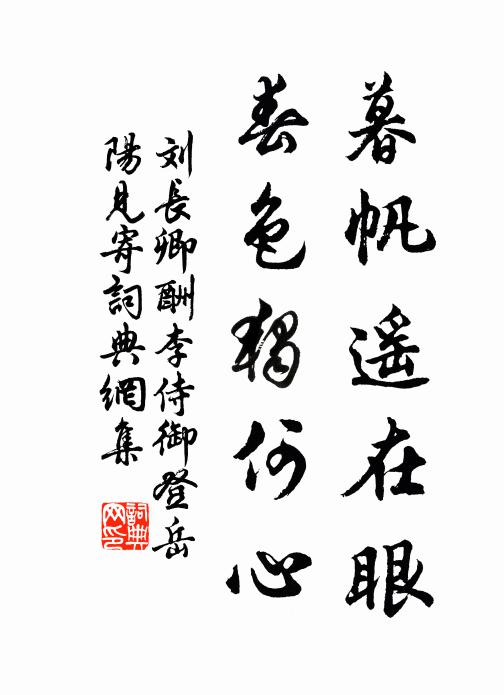 暮帆遥在眼
春色独何心
刘長卿酬李侍御登岳
陽見寄詞典網集
詞典
网印